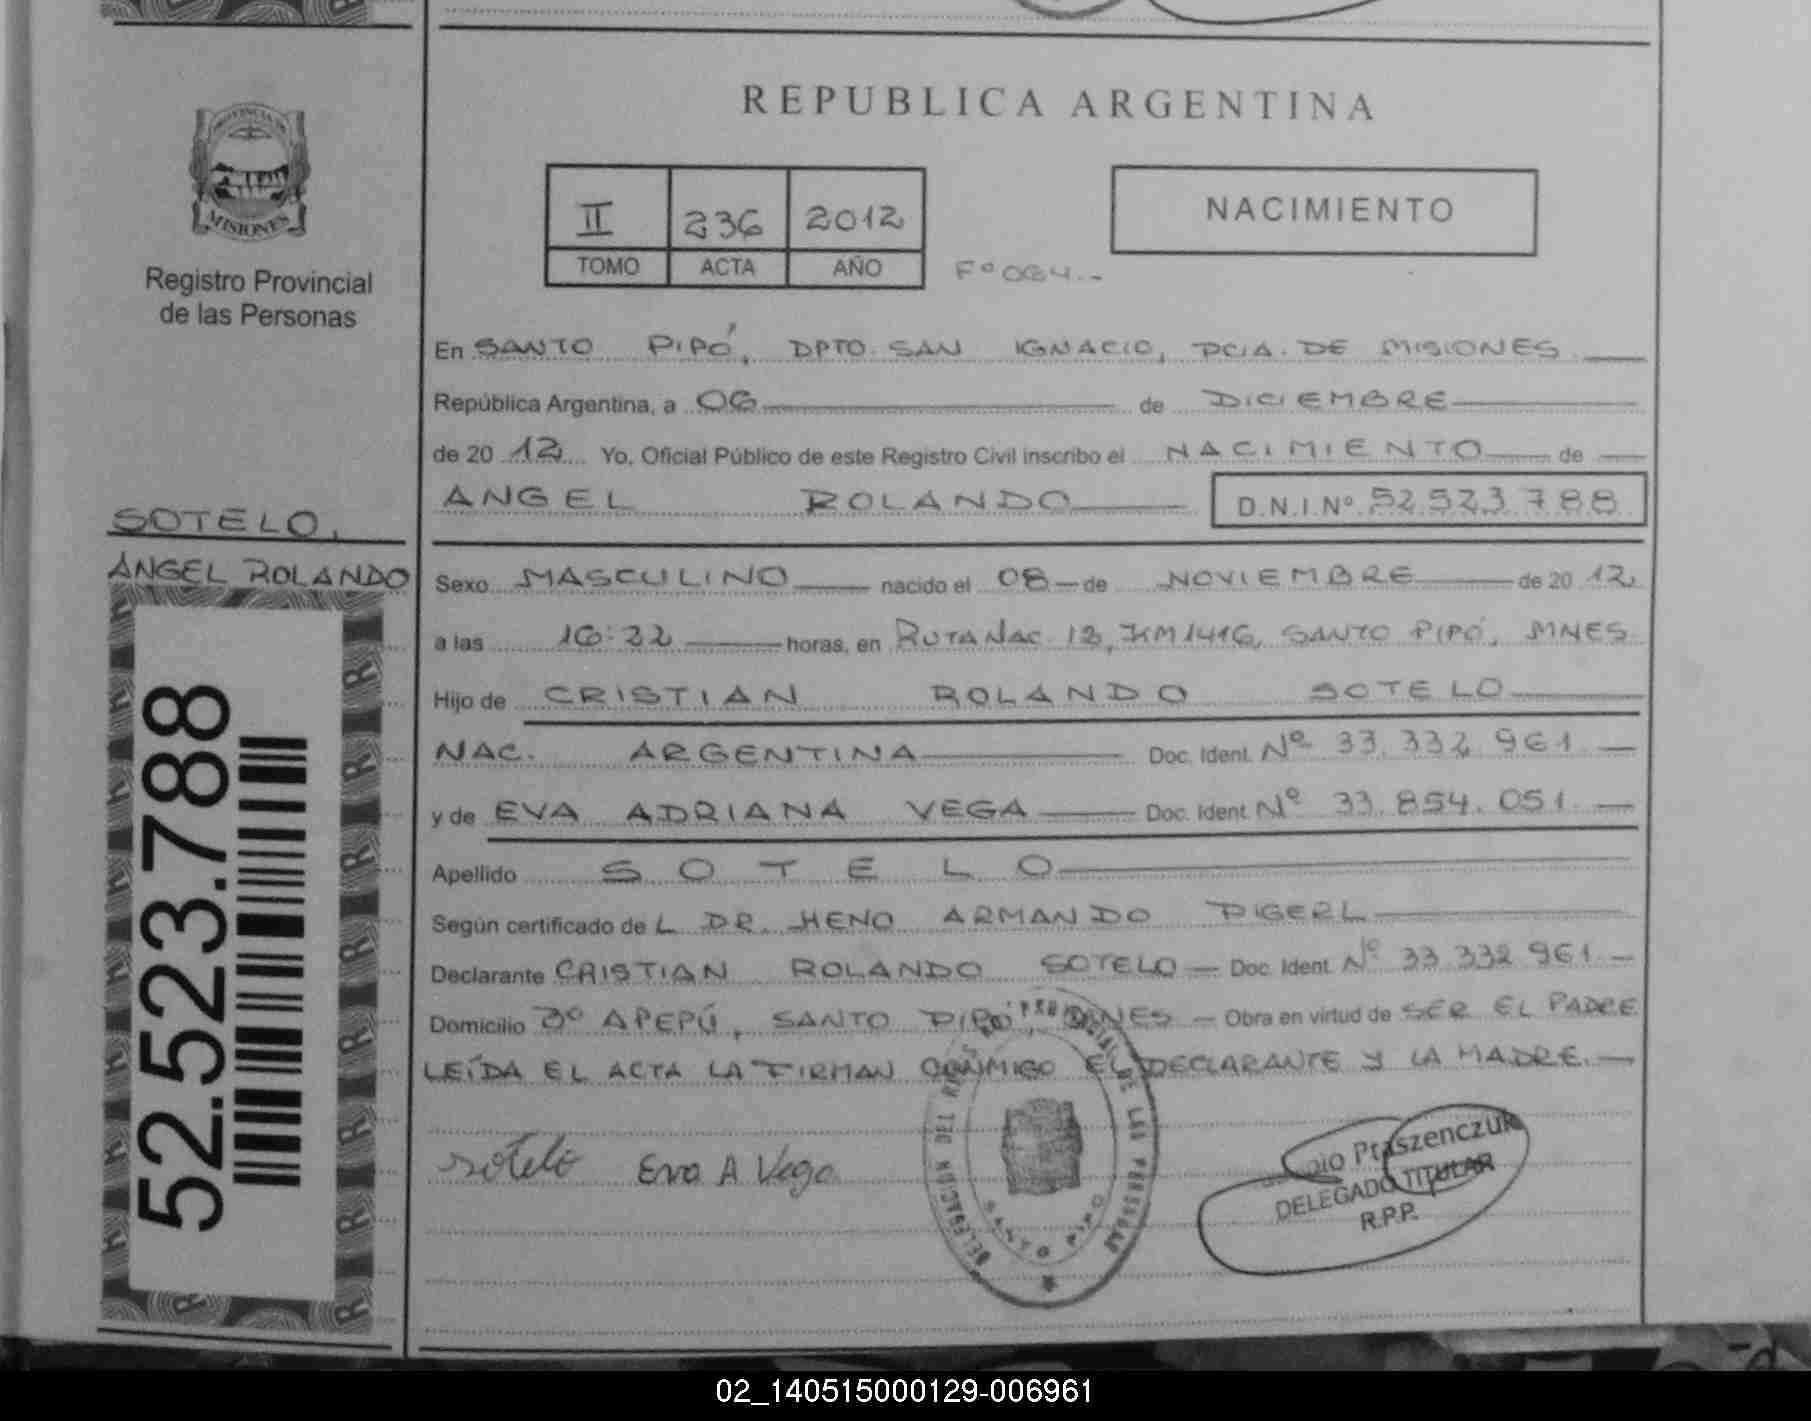 REPUBLICA ARGENTINA
PROVINCIA DE
MISIONES
Registro Provincial
de las Personas
II 236 2012
TOMO ACTA AÑO
Fº 084.-
NACIMIENTO
En SANTO PIPÓ, DPTO. SAN IGNACIO, PCIA. DE MISIONES
República Argentina, a 06 de DICIEMBRE
de 20 12 Yo, Oficial Público de este Registro Civil inscribo el NACIMIENTO de
ANGEL ROLANDO D.N.I.Nº 52.523.788
SOTELO,
ANGEL ROLANDO
52.523.788
Sexo MASCULINO nacido el 08 de NOVIEMBRE de 20 12
a las 16:22 horas, en RUTA NAC. 12, KM 1416, SANTO PIPÓ, MNES
Hijo de CRISTIAN ROLANDO SOTELO
NAC. ARGENTINA Doc. Ident. Nº 33.332.961
y de EVA ADRIANA VEGA Doc. Ident. Nº 33.854.051
Apellido SOTELO
Según certificado de L DR. HENO ARMANDO DIGERL
Declarante CRISTIAN ROLANDO SOTELO Doc. Ident. Nº 33.332.961
Domicilio Bº APEPÚ, SANTO PIPÓ, MNES Obra en virtud de SER EL PADRE
LEÍDA EL ACTA LA FIRMAN CONMIGO EL DECLARANTE Y LA MADRE.
Sotelo Eva A Vega
DELEGACION DEL PROVINCIAL DE LAS PERSONAS
SANTO PIPO
Praszenczuk
DELEGADO TITULAR
R.P.P.
02_140515000129-006961